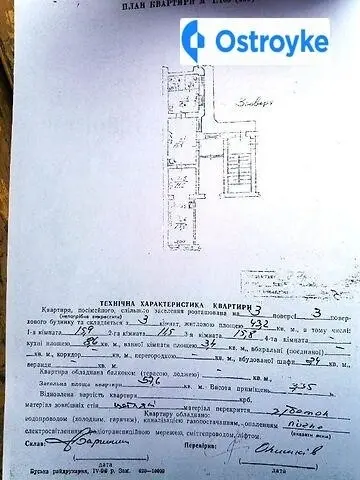 ПЛАН КВАРТИРИ №
Ostroyke
ТЕХНІЧНА ХАРАКТЕРИСТИКА КВАРТИРИ
Квартира, посімейного, спільного заселення розташована на 3 поверсі 3 повер-
(непотрібне закреслити)
лового будинку та складається з 3 кімнат, житловою площею 43,2 кв. м, в тому числі
1-а кімната 15,9 2-га кімната 11,5 3-я кімната 15,8 4-та кімната —
кухні площею 8,6 кв. м, ванної кімнати площею 3,4 кв. м, вбиральні (поєднаної)
— кв. м, коридор — кв. м, перегородкою — кв. м, вбудованої шафи 2,4 кв. м,
веранди — кв. м.
Квартира обладнана балконом (терасою, лоджією) — кв. м.
Загальна площа квартири 57,6 кв. м. Висота приміщень 3,35 м.
Відновлена вартість квартири крб.
матеріал зовнішніх стін матеріал перекриття з/бетон
Квартиру обладнано:
водопроводом (холодним, гарячим), каналізацією, газопостачанням, опаленням пічне
(вказати яким)
електроосвітленням, радіотрансляційною мережею, сміттєпроводом, ліфтом.
Склав: Перевірив:
дата дата
Буська райдрукарня, IV-99 р. Зам.